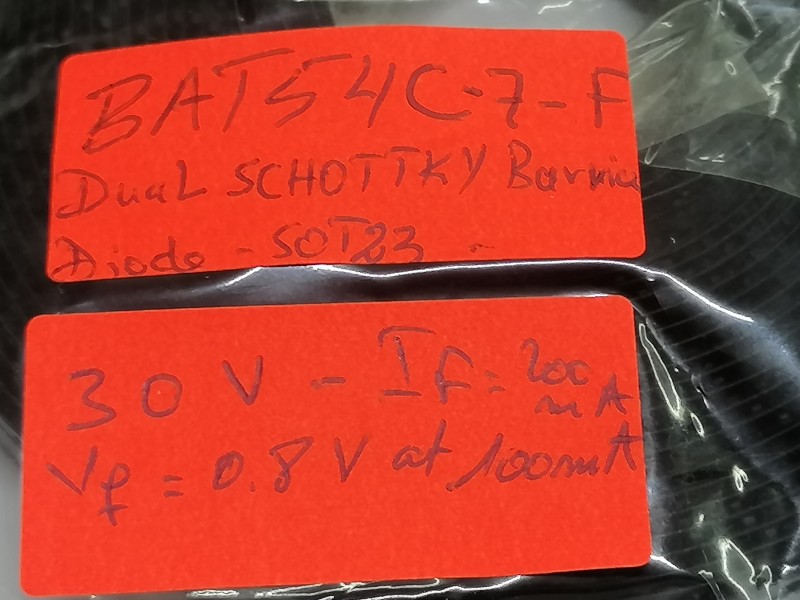 BAT54C-7-F
Dual SCHOTTKY Barrier
Diode - SOT23
30 V - If = 200 mA
Vf = 0.8 V at 100mA